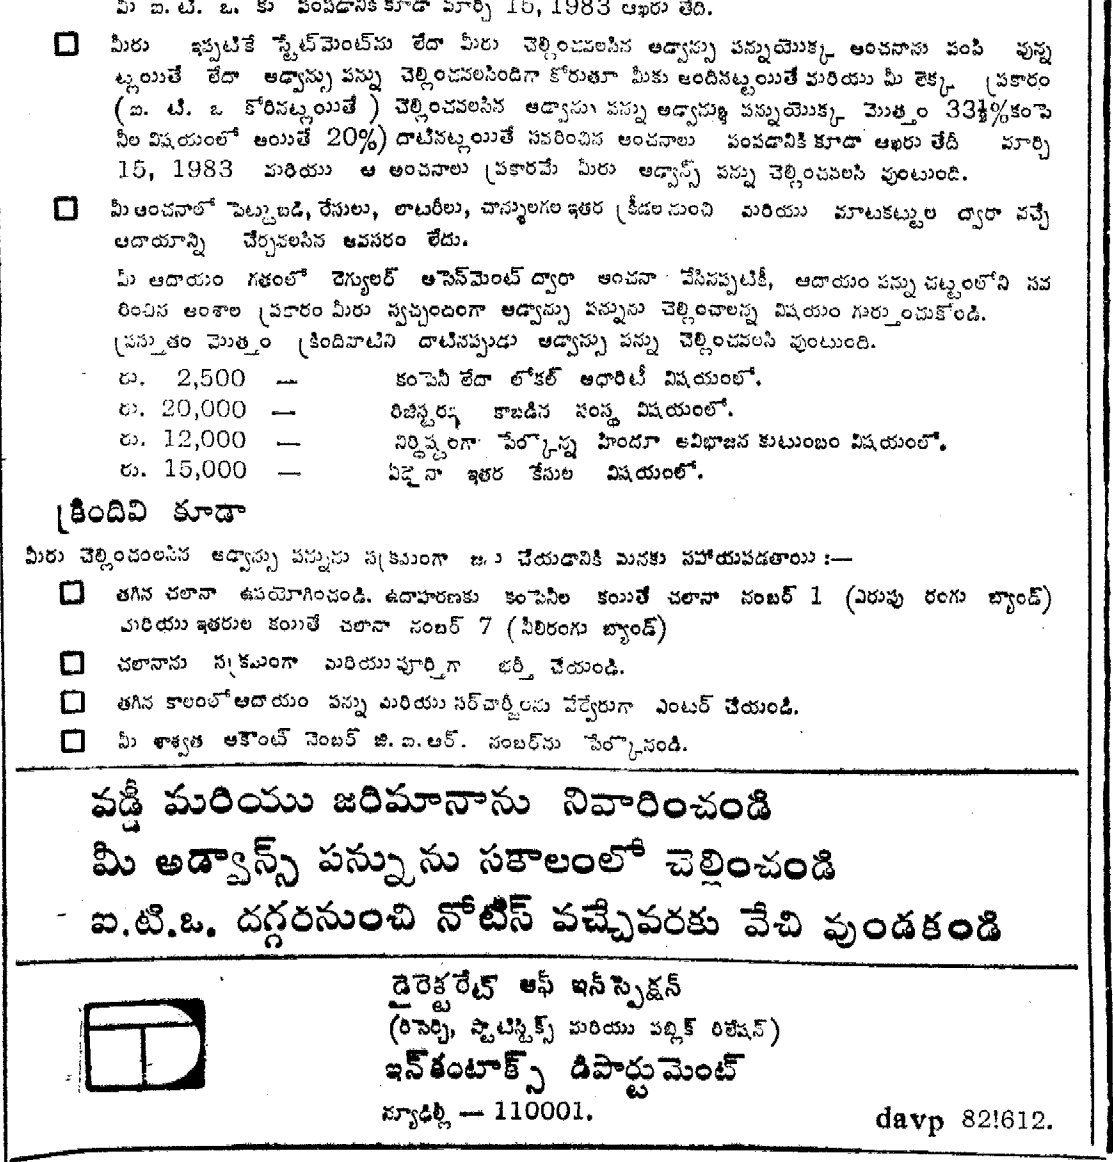 మీ ఐ. టి. ఒ. కు పంపడానికి కూడా మార్చి 15, 1983 ఆఖరు తేది.
□ మీరు ఇప్పటికే స్టేట్‌మెంట్‌ను లేదా మీరు చెల్లించవలసిన అడ్వాన్సు పన్నుయొక్క అంచనాను పంపి వున్న
ట్లయితే లేదా అడ్వాన్సు పన్ను చెల్లించవలసిందిగా కోరుతూ మీకు అందినట్లయితే మరియు మీ లెక్క ప్రకారం
(ఐ. టి. ఒ కోరినట్లయితే) చెల్లించవలసిన అడ్వాన్సు పన్ను అడ్వాన్సు పన్నుయొక్క మొత్తం 33⅓%కంపె
నీల విషయంలో అయితే 20%) దాటినట్లయితే సవరించిన అంచనాలు పంపడానికి కూడా ఆఖరు తేదీ మార్చి
15, 1983 మరియు ఆ అంచనాలు ప్రకారమే మీరు అడ్వాన్స్ పన్ను చెల్లించవలసి వుంటుంది.
□ మీ అంచనాలో పెట్టుబడి, రేసులు, లాటరీలు, చాన్సులగల ఇతర క్రీడల నుంచి మరియు మాటకట్టుల ద్వారా వచ్చే
ఆదాయాన్ని చేర్చవలసిన అవసరం లేదు.
మీ ఆదాయం గతంలో రెగ్యులర్ అసెస్‌మెంట్ ద్వారా అంచనా వేసినప్పటికీ, ఆదాయం పన్ను చట్టంలోని సవ
రించిన అంశాల ప్రకారం మీరు స్వచ్ఛందంగా అడ్వాన్సు పన్నును చెల్లించాలన్న విషయం గుర్తుంచుకోండి.
ప్రస్తుతం మొత్తం క్రిందివాటిని దాటినప్పుడు అడ్వాన్సు పన్ను చెల్లించవలసి వుంటుంది.
రు. 2,500 — కంపెనీ లేదా లోకల్ అథారిటీ విషయంలో.
రు. 20,000 — రిజిస్టర్డు కాబడిన సంస్థ విషయంలో.
రు. 12,000 — నిర్దిష్టంగా పేర్కొన్న హిందూ అవిభాజన కుటుంబం విషయంలో.
రు. 15,000 — ఏదైనా ఇతర కేసుల విషయంలో.
క్రిందివి కూడా
మీరు చెల్లించవలసిన అడ్వాన్సు పన్నును సక్రమంగా జమ చేయడానికి మనకు సహాయపడతాయి :—
□ తగిన చలానా ఉపయోగించండి. ఉదాహరణకు కంపెనీల కయితే చలానా నంబర్ 1 (ఎరుపు రంగు బ్యాండ్)
మరియు ఇతరుల కయితే చలానా నంబర్ 7 (నీలిరంగు బ్యాండ్)
□ చలానాను సక్రమంగా మరియు పూర్తిగా భర్తీ చేయండి.
□ తగిన కాలంలో ఆదాయం పన్ను మరియు సర్‌చార్జీలను వేర్వేరుగా ఎంటర్ చేయండి.
□ మీ శాశ్వత అకౌంట్ నెంబర్ జి. ఐ. ఆర్. నంబర్‌ను పేర్కొనండి.
వడ్డీ మరియు జరిమానాను నివారించండి
మీ అడ్వాన్స్ పన్నును సకాలంలో చెల్లించండి
ఐ.టి.ఒ. దగ్గరనుంచి నోటీస్ వచ్చేవరకు వేచి వుండకండి
డైరెక్టరేట్ ఆఫ్ ఇన్‌స్పెక్షన్
(రిసెర్చి, స్టాటిస్టిక్స్ మరియు పబ్లిక్ రిలేషన్)
ఇన్‌కంటాక్స్ డిపార్టుమెంట్
న్యూఢిల్లీ — 110001.
davp 82!612.